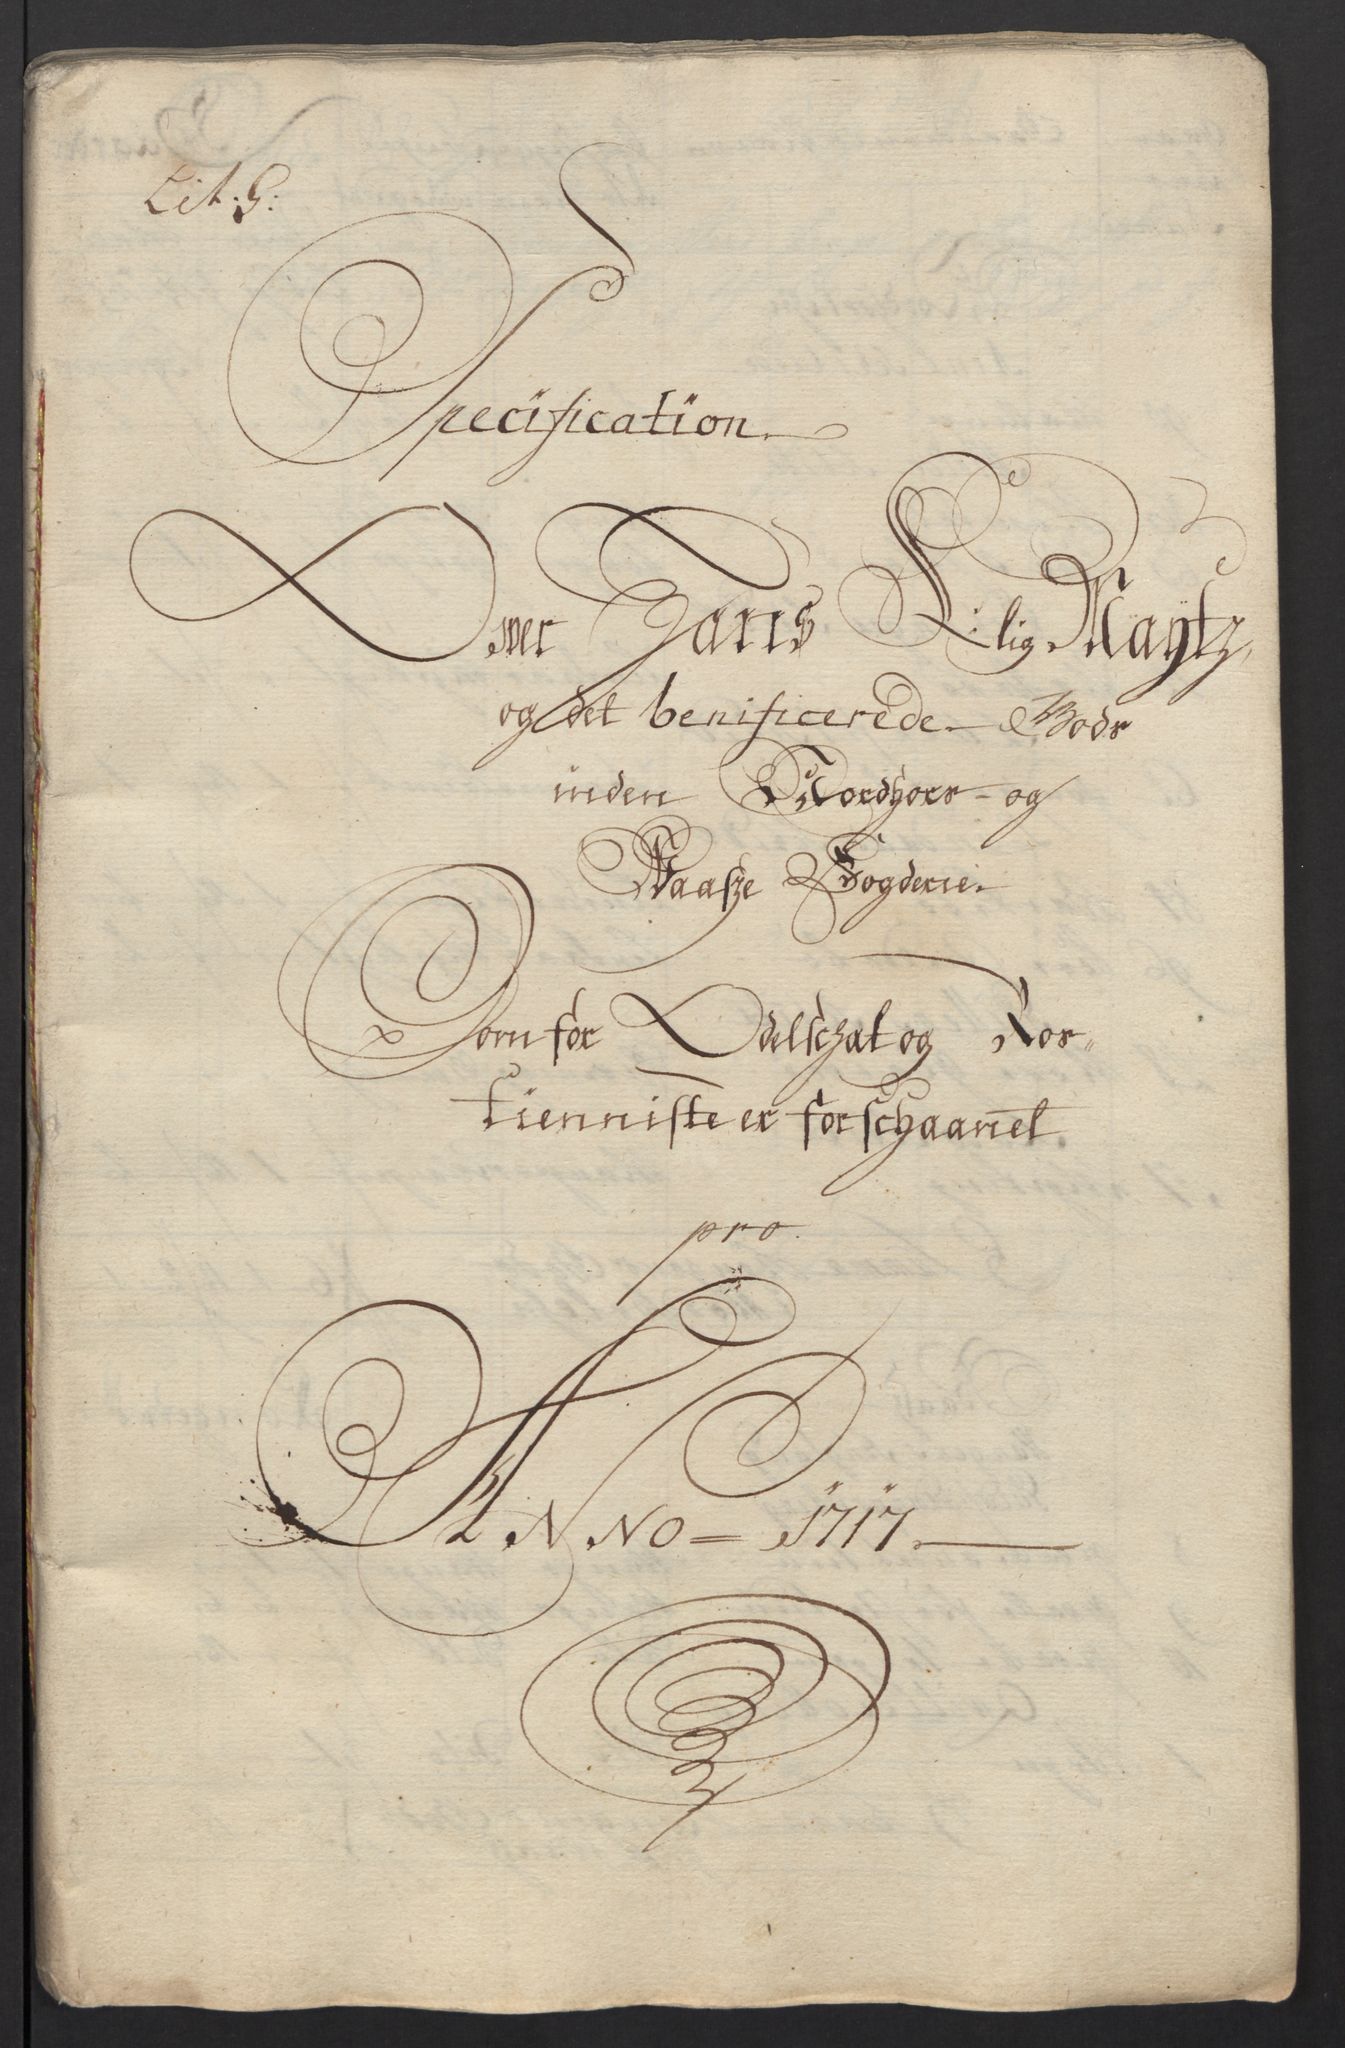 Lit: G:
Specification
Over Hans Kl: lig Maÿtz,
og det benificerede Gods
inden Nordhors og
Waasze Fogderie.
Som for Odelschat og Ros-
tienniste er forschaanet
pro.
ANNO = 1717.